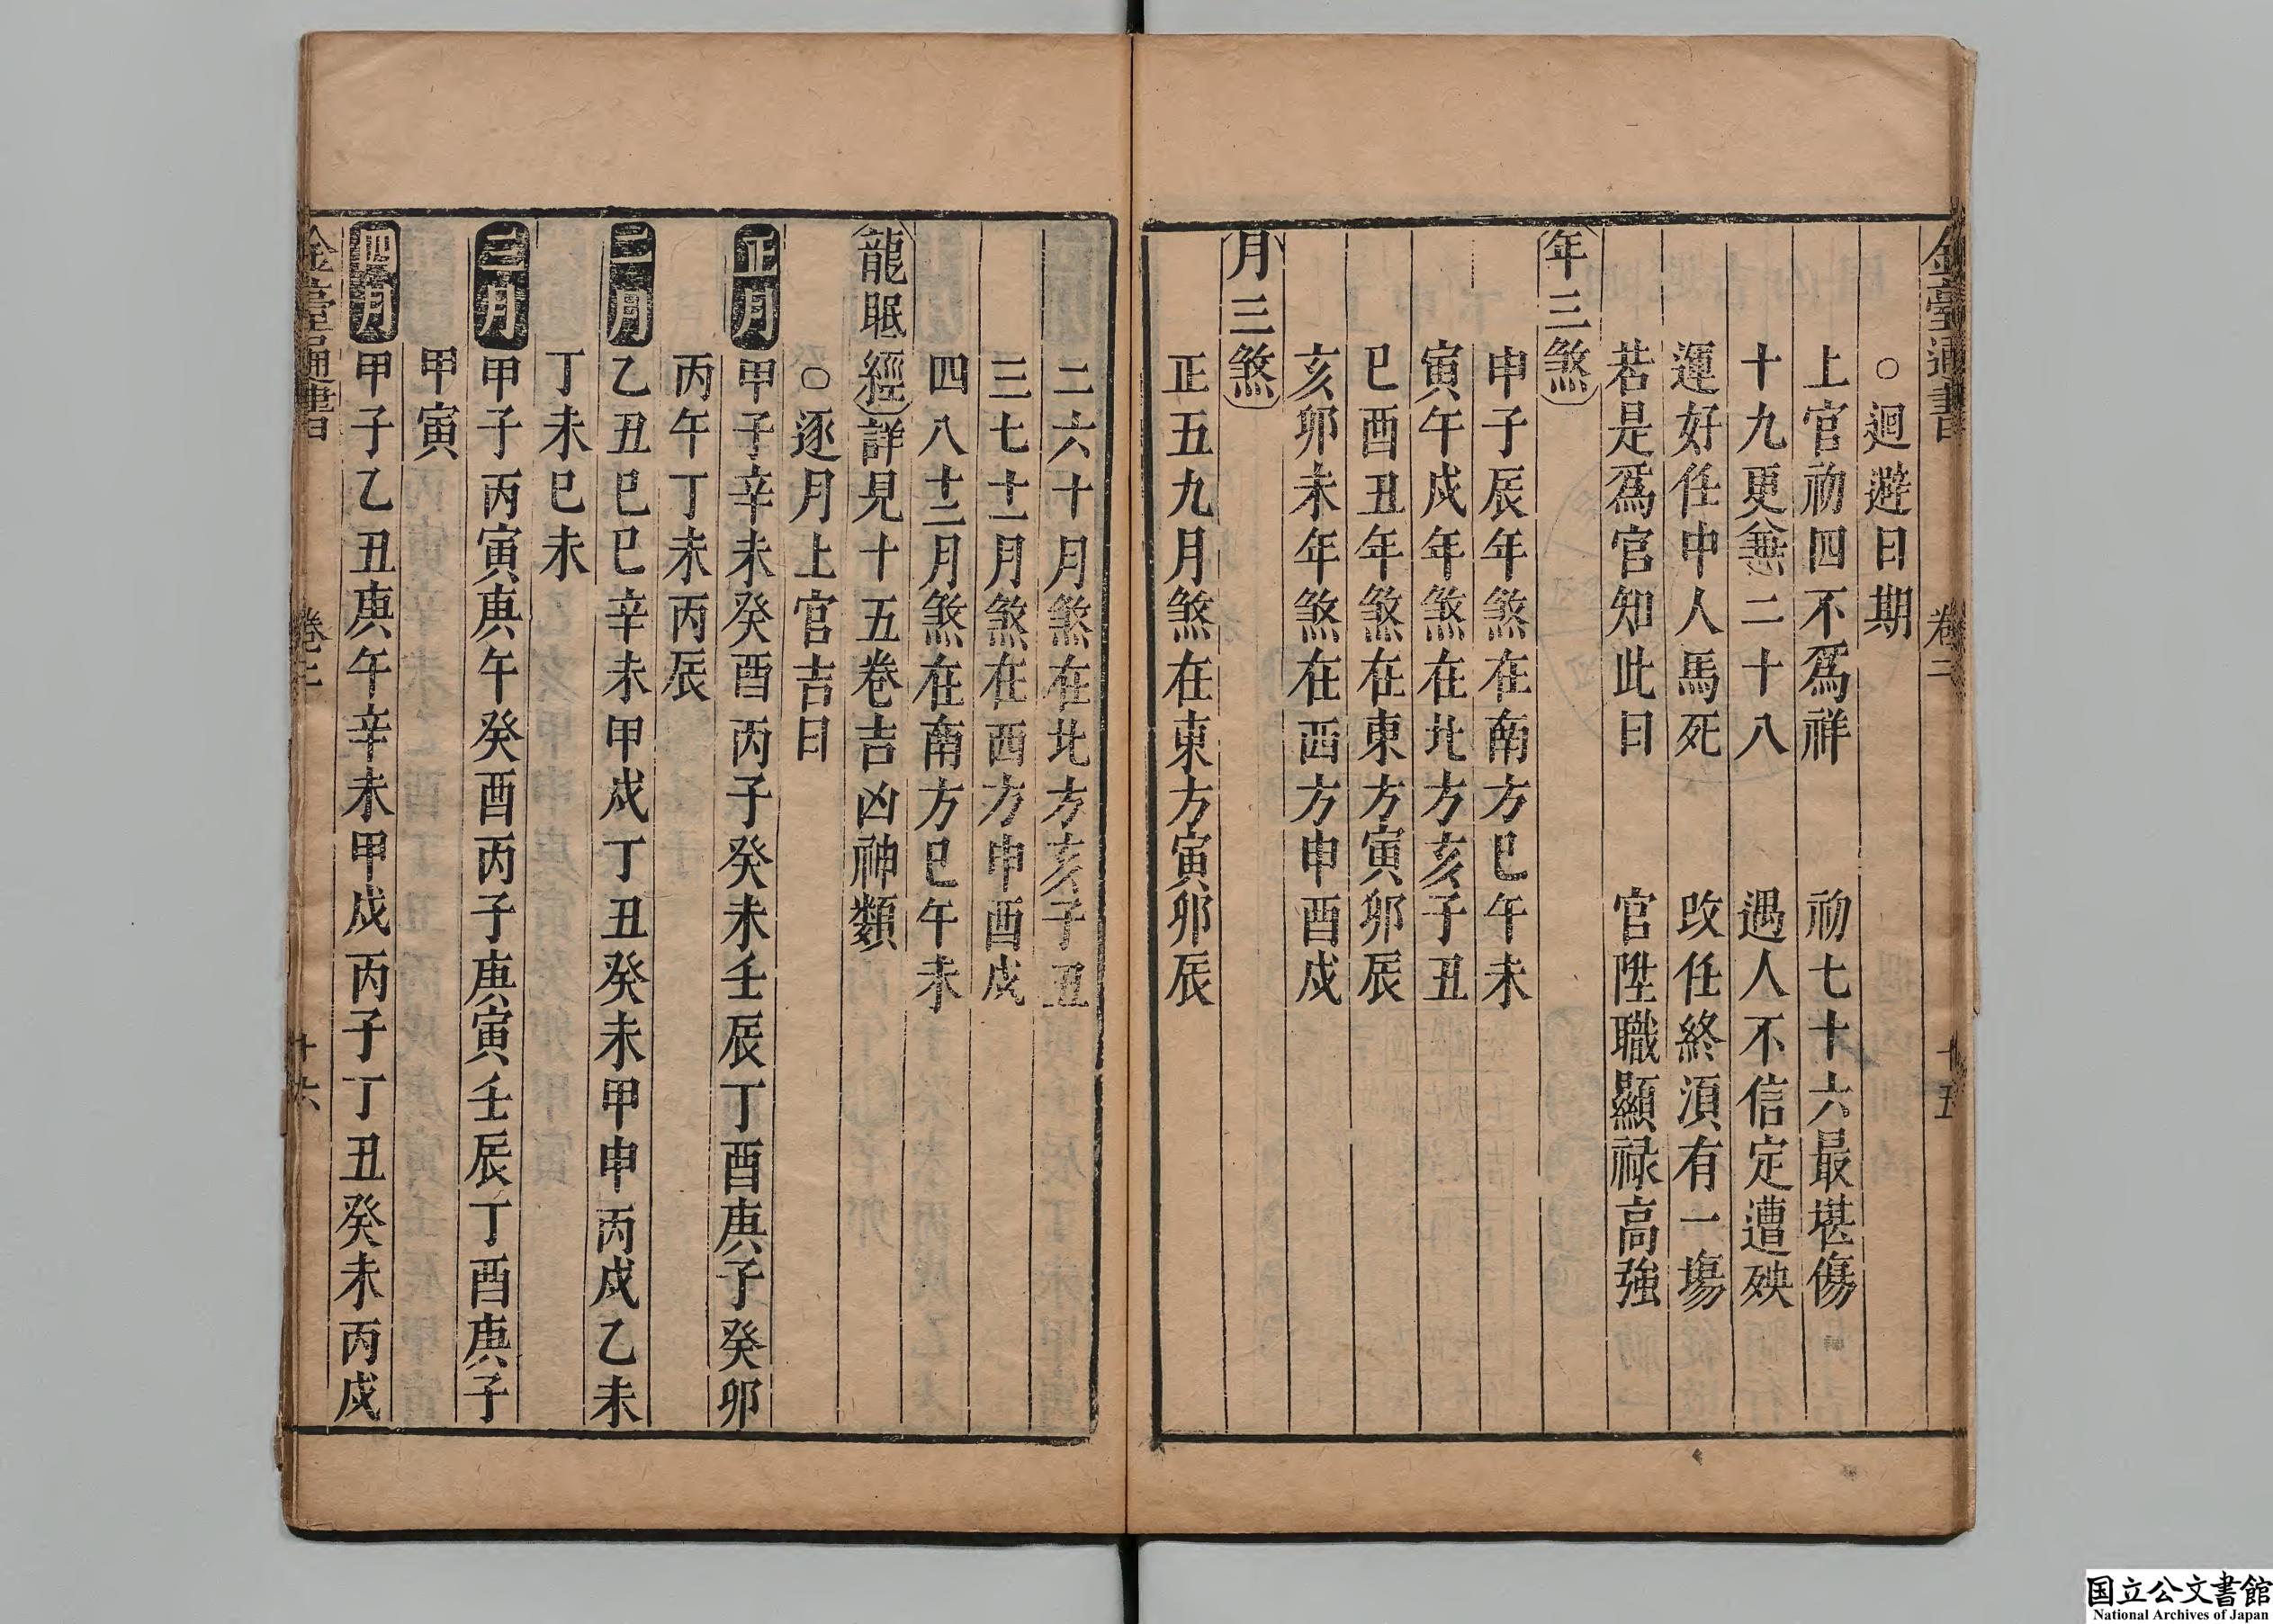 金臺通書 卷二 十五
○迴避日期
上官初四不爲祥 初七十六最堪傷
十九更兼二十八 遇人不信定遭殃
運好任中人馬死 改任終須有一場
若是爲官知此日 官陞職顯祿高強
年三煞
申子辰年煞在南方巳午未
寅午戌年煞在北方亥子丑
巳酉丑年煞在東方寅卯辰
亥卯未年煞在西方申酉戌
月三煞
正五九月煞在東方寅卯辰
二六十月煞在北方亥子丑
三七十一月煞在西方申酉戌
四八十二月煞在南方巳午未
龍眠經詳見十五卷吉凶神類
○逐月上官吉日
正月甲子辛未癸酉丙子癸未壬辰丁酉庚子癸卯
丙午丁未丙辰
二月乙丑巳巳辛未甲戌丁丑癸未甲申丙戌乙未
丁未巳未
三月甲子丙寅庚午癸酉丙子庚寅壬辰丁酉庚子
甲寅
四月甲子乙丑庚午辛未甲戌丙子丁丑癸未丙戌
金臺通書 卷二 十六
国立公文書館
National Archives of Japan